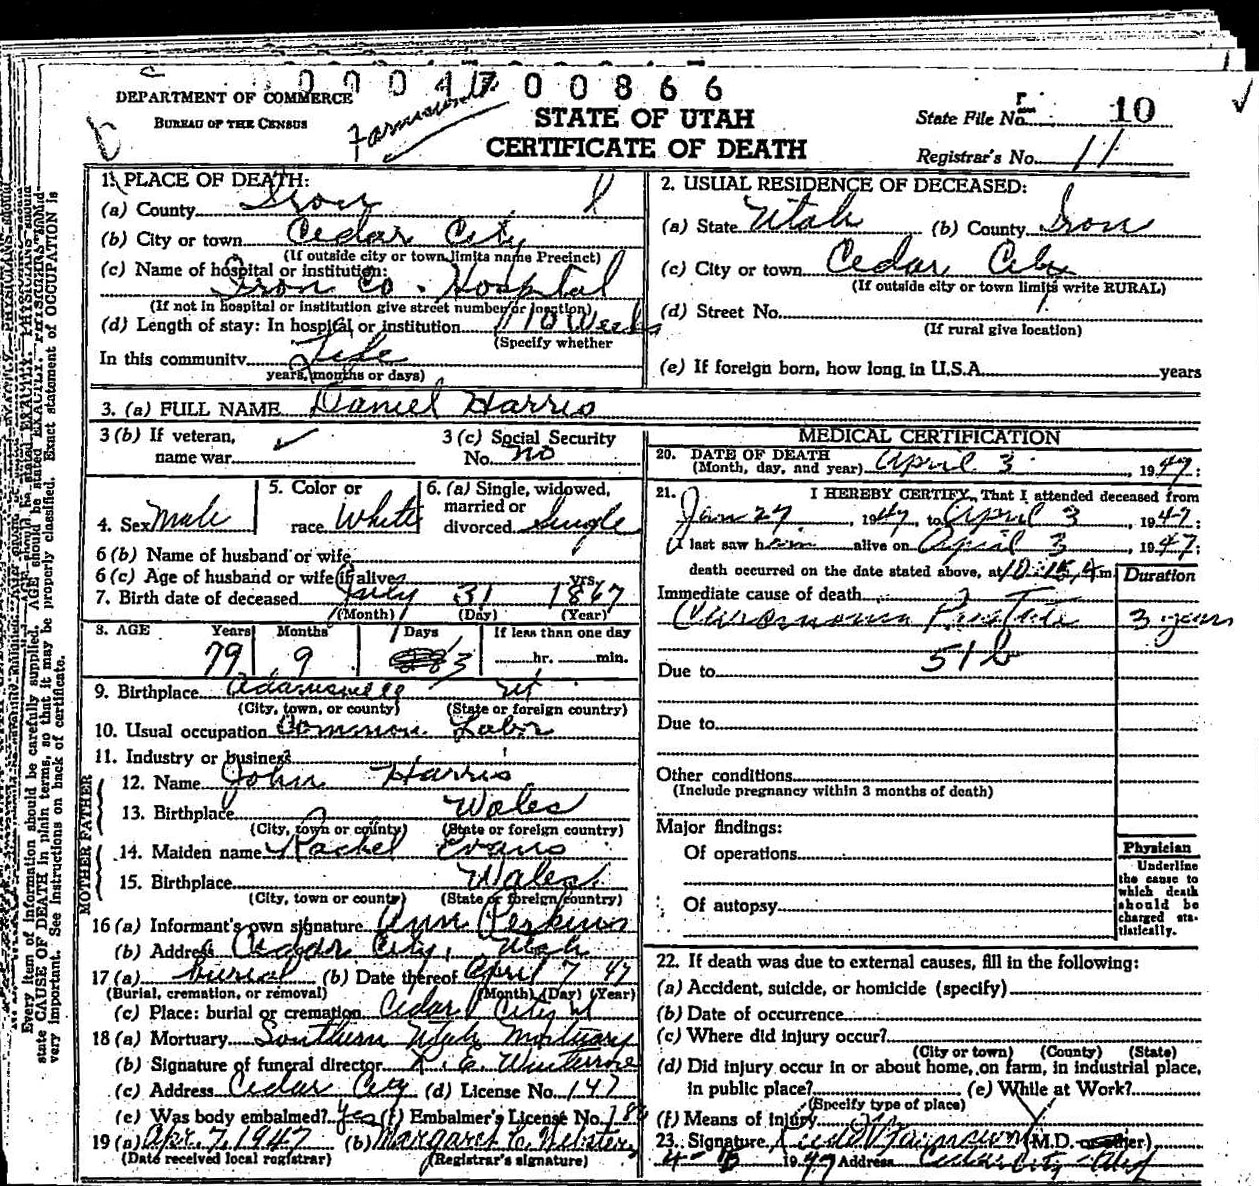 000 47 00866
DEPARTMENT OF COMMERCE
BUREAU OF THE CENSUS
STATE OF UTAH
CERTIFICATE OF DEATH
State File No. 10
Registrar's No. 11
1. PLACE OF DEATH:
(a) County Iron
(b) City or town Cedar City
(If outside city or town limits name Precinct)
(c) Name of hospital or institution:
Iron Co. Hospital
(If not in hospital or institution give street number or location)
(d) Length of stay: In hospital or institution 10 Weeks
(Specify whether
In this community Life
years, months or days)
2. USUAL RESIDENCE OF DECEASED:
(a) State Utah (b) County Iron
(c) City or town Cedar City
(If outside city or town limits write RURAL)
(d) Street No.
(If rural give location)
(e) If foreign born, how long in U.S.A. years
3. (a) FULL NAME Daniel Harris
3 (b) If veteran, name war
3 (c) Social Security No. no
4. Sex Male
5. Color or race White
6. (a) Single, widowed, married or divorced Single
6 (b) Name of husband or wife
6 (c) Age of husband or wife if alive yrs.
7. Birth date of deceased July 31 1867
(Month) (Day) (Year)
8. AGE Years Months Days If less than one day
79 9 3 hr. min.
9. Birthplace Adamsville Ut
(City, town, or county) (State or foreign country)
10. Usual occupation Common Labor
11. Industry or business
FATHER
12. Name John Harris
13. Birthplace Wales
(City, town or county) (State or foreign country)
MOTHER
14. Maiden name Rachel Evans
15. Birthplace Wales
(City, town or county) (State or foreign country)
16 (a) Informant's own signature Ann Perkins
(b) Address Cedar City, Utah
17 (a) burial (b) Date thereof April 7 47
(Burial, cremation, or removal) (Month) (Day) (Year)
(c) Place: burial or cremation Cedar City Ut
18 (a) Mortuary Southern Utah Mortuary
(b) Signature of funeral director
(c) Address Cedar City (d) License No. 147
(e) Was body embalmed? Yes (f) Embalmer's License No.
19 (a) Apr. 7, 1947 (b) Margaret C. Webster
(Date received local registrar) (Registrar's signature)
MEDICAL CERTIFICATION
20. DATE OF DEATH
(Month, day, and year) April 3 1947;
21. I HEREBY CERTIFY, That I attended deceased from
Jan 27, 1947, to April 3, 1947;
I last saw him alive on April 3, 1947;
death occurred on the date stated above, at 10:15 A.m.
Duration
Immediate cause of death
Carcinoma Prostate 3 years
51b
Due to
Due to
Other conditions
(Include pregnancy within 3 months of death)
Major findings:
Of operations
Of autopsy
Physician
Underline
the cause to
which death
should be
charged sta-
tistically.
22. If death was due to external causes, fill in the following:
(a) Accident, suicide, or homicide (specify)
(b) Date of occurrence
(c) Where did injury occur?
(City or town) (County) (State)
(d) Did injury occur in or about home, on farm, in industrial place,
in public place? (e) While at Work?
(Specify type of place)
(f) Means of injury
23. Signature M.D. or other)
1947 Address Cedar City Utah
Every item of information should be carefully supplied. AGE should be stated EXACTLY. PHYSICIANS should
state CAUSE OF DEATH in plain terms, so that it may be properly classified. Exact statement of OCCUPATION is
very important. See instructions on back of certificate.